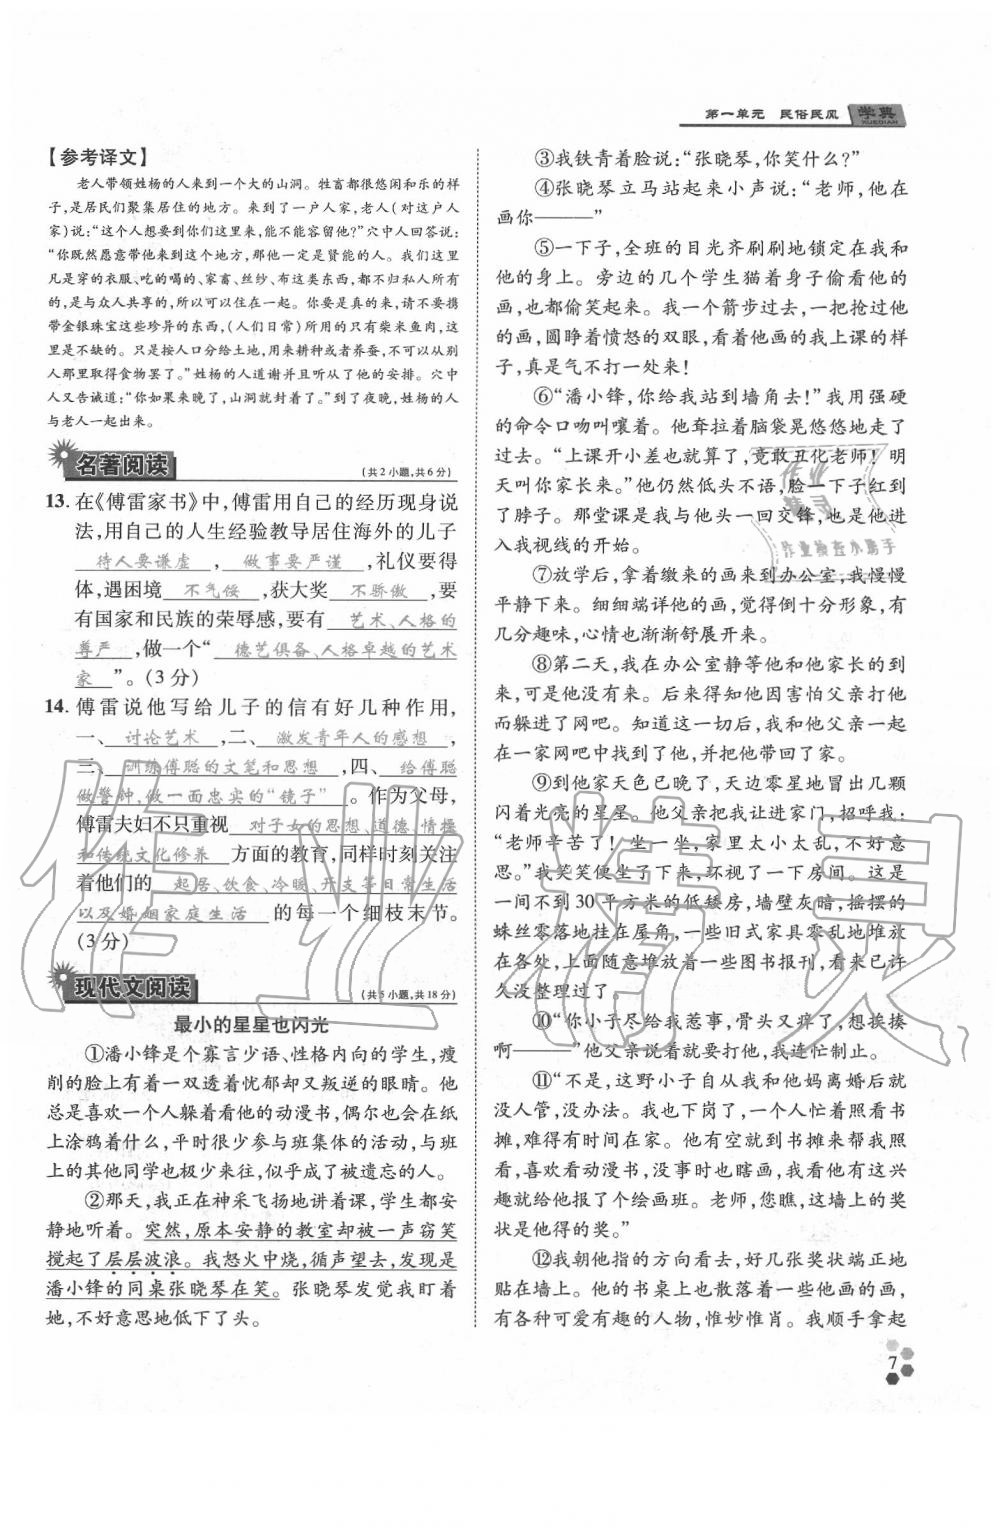 第一单元 民俗民风 学典
XUEDIAN
【参考译文】
老人带领姓杨的人来到一个大的山洞。牲富都很悠闲和乐的样
子,是居民们聚集居住的地方。来到了一户人家,老人(对这户人
家)说:“这个人想要到你们这里来,能不能容留他?”穴中人回答说:
“你既然愿意带他来到这个地方,那他一定是贤能的人。我们凡
是穿的衣服、吃的喝的、家畜、丝纱、布之类的,都不归私人所有
的,是与众人共享的,所以可以住在一起。你要是真的来,请不要携
带金银珠宝这些珍异的东西,(人们日常)所用的只有柴米鱼肉,这
里是不缺的。只是按人口分给土地,用来耕种或者养蚕,不可以从
别人处取得食物罢了。”姓杨的人道谢并且听从了他的安排。穴中
人又告诫道:“你如果来晚了,山洞就封着了。”到了夜晚,姓杨的人
与老人一起出来。
名著阅读 (共2小题,共6分)
13. 在《傅雷家书》中,傅雷用自己的经历现身说
法,用自己的人生经验教导居住海外的儿子
待人要谦虚,做事要严谨,礼仪要得
体,遇困境不气馁,获大奖不骄傲,要
有国家和民族的荣辱感,要有艺术、人格的
尊严,做一个“德艺俱备、人格卓越的艺术
家”。(3分)
14. 傅雷说他写给儿子的信有好几种作用,
一、讨论艺术,二、激发青年人的感想,
三、训练傅聪的文笔和思想,四、给傅聪
做警钟,做一面忠实的“镜子”。作为父母,
傅雷夫妇不只重视对子女的思想、道德、情操
和传统文化修养方面的教育,同样时刻关注
着他们的起居、饮食、冷暖、开支等日常生活
以及婚姻家庭生活的每一个细枝末节。
(3分)
现代文阅读 (共5小题,共18分)
最小的星星也闪光
①潘小锋是个寡言少语、性格内向的学生,瘦
削的脸上有着一双透着忧郁却又叛逆的眼睛。他
总是喜欢一个人躲着看他的动漫书,偶尔也会在纸
上涂鸦着什么,平时很少参与班集体的活动,与班
上的其他同学也极少来往,似乎成了被遗忘的人。
②那天,我正在神采飞扬地讲着课,学生都安
静地听着。突然,原本安静的教室却被一声窃笑
搅起了层层波浪。我怒火中烧,循声望去,发现是
潘小锋的同桌张晓琴在笑。张晓琴发觉我盯着
她,不好意思地低下了头。
③我铁青着脸说:“张晓琴,你笑什么?”
④张晓琴立马站起来小声说:“老师,他在
画你———”
⑤一下子,全班的目光齐刷刷地锁定在我和
他的身上。旁边的几个学生猫着身子偷看他的
画,也都偷笑起来。我一个箭步过去,一把抢过他
的画,圆睁着愤怒的双眼,看着他画的我上课的样
子,真是气不打一处来!
⑥“潘小锋,你给我站到墙角去!”我用强硬
的命令口吻叫嚷着。他耷拉着脑袋晃悠悠地走了
过去。“上课开小差也就算了,竟敢丑化老师!明
天叫你家长来。”他仍然低头不语,脸一下子红到
了脖子。那堂课是我与他头一回交锋,也是他进
入我视线的开始。
⑦放学后,拿着缴来的画来到办公室,我慢慢
平静下来。细细端详他的画,觉得倒十分形象,有
几分趣味,心情也渐渐舒展开来。
⑧第二天,我在办公室静等他和他家长的到
来,可是他没有来。后来得知他因害怕父亲打他
而躲进了网吧。知道这一切后,我和他父亲一起
在一家网吧中找到了他,并把他带回了家。
⑨到他家天色已晚了,天边零星地冒出几颗
闪着光亮的星星。他父亲把我让进家门,招呼我:
“老师辛苦了!坐一坐,家里太小太乱,不好意
思。”我笑笑便坐了下来,环视了一下房间。这是
一间不到30平方米的低矮房,墙壁灰暗,摇摆的
蛛丝零落地挂在屋角,一些旧式家具零乱地堆放
在各处,上面随意堆放着一些图书报刊,看来已许
久没整理过了。
⑩“你小子尽给我惹事,骨头又痒了,想挨揍
啊———”他父亲说着就要打他,我连忙制止。
⑪“老师,这野小子自从我和他妈离婚后就
没人管,没办法。我也下岗了,一个人忙着照看书
摊,难得有时间在家。他有空就到书摊来帮我看
看,喜欢看动漫书,没事时也瞎画,我见他有这兴
趣就给他报了个绘画班。老师,您瞧,这墙上的奖
状是他得的奖。”
⑫我朝他指的方向看去,好几张奖状端正地
贴在墙上。他的书桌上也散落着一些他画的画,
有各种可爱有趣的人物,惟妙惟肖。我顺手拿起
7
作业精灵
作业精灵
作业检查小助手